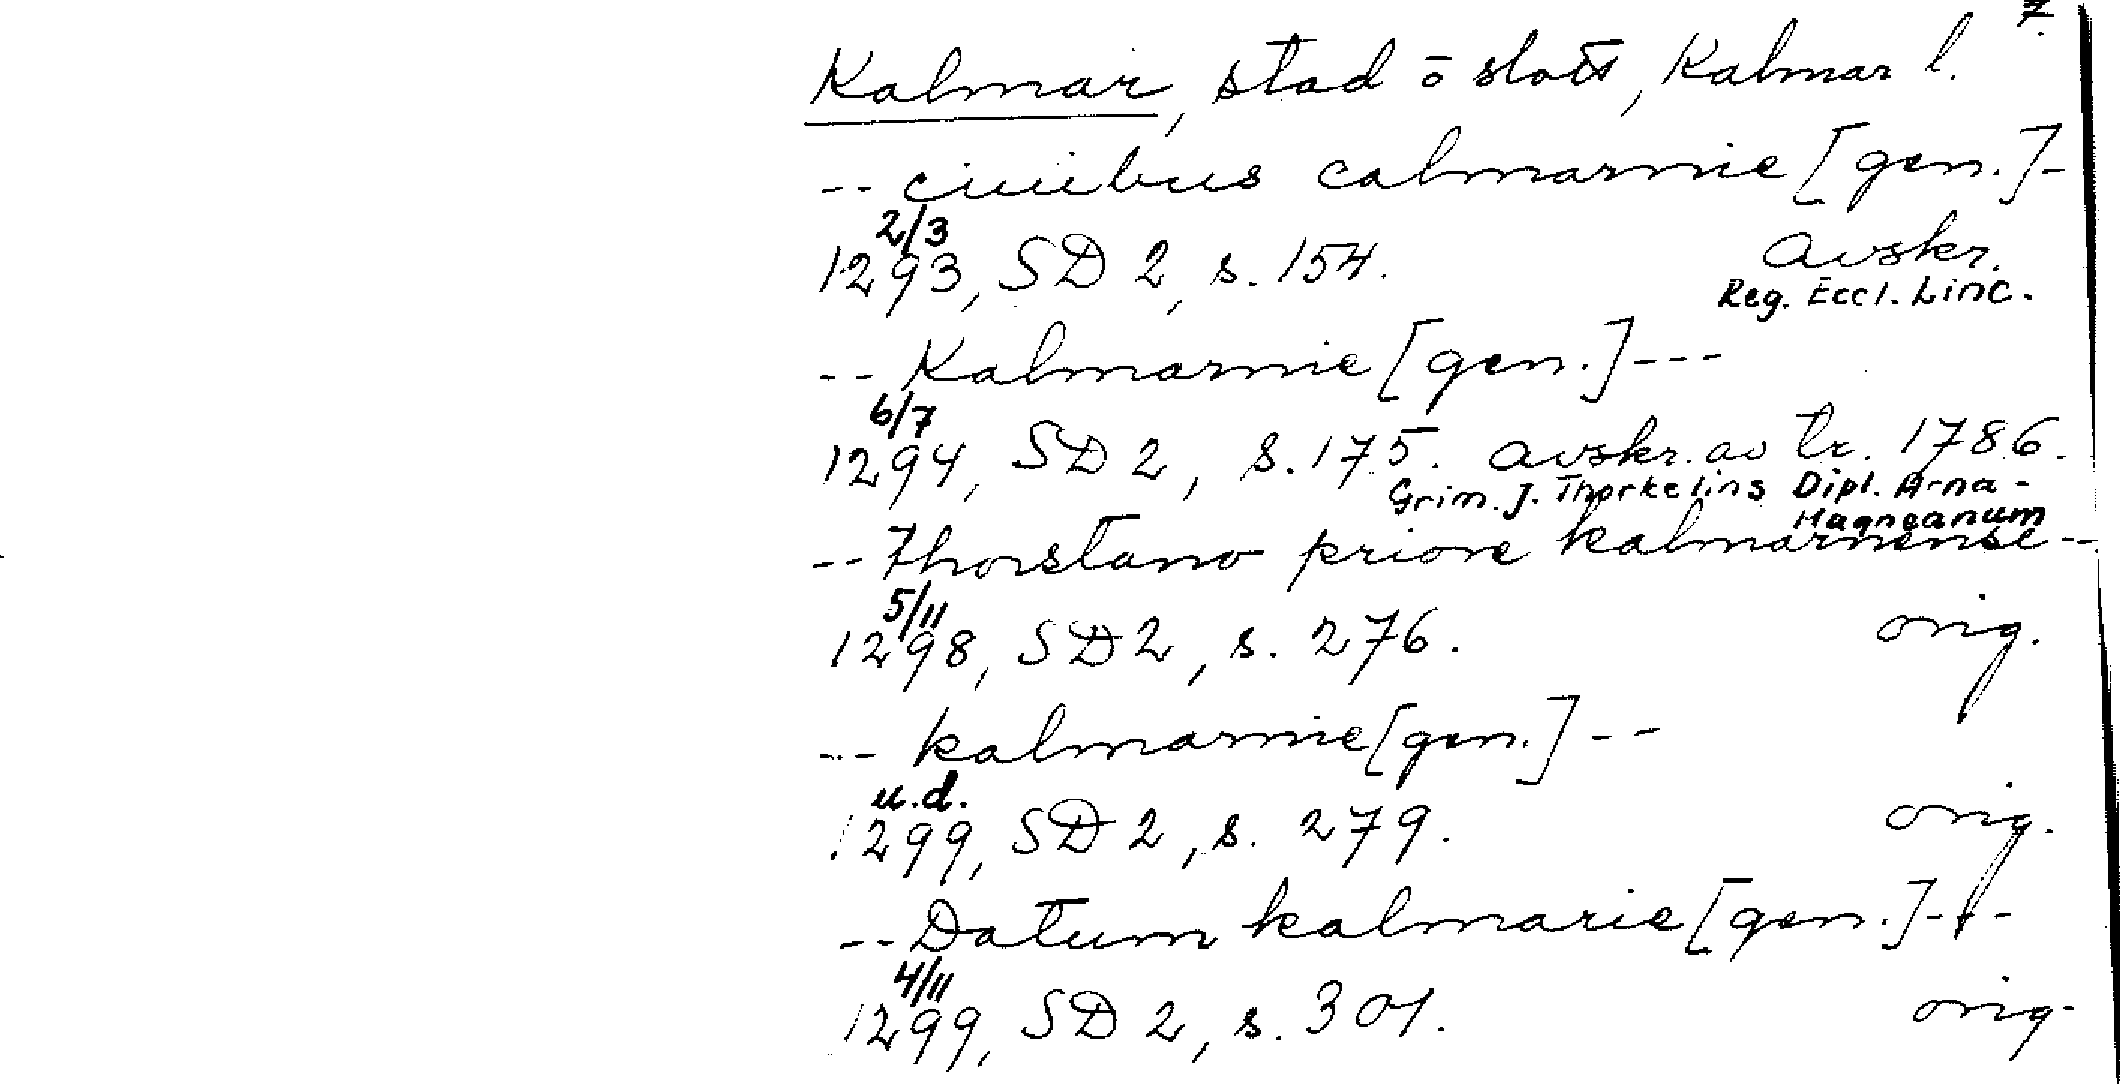 7.
Kalmar, stad ō slott, Kalmar l.
-- ciuibus calmarnie [gen.]-
2/3
1293, SD 2, s. 154. avskr.
Reg. Eccl. Linc.
-- Kalmarnie [gen.]---
6/7
1294, SD 2, s. 175. avskr. av tr. 1786.
Grim. J. Thorkelins Dipl. Arna-
Magneanum
-- Thorstano priore kalmarnense --
5/11
1298, SD 2, s. 276. orig.
-- kalmarnie [gen.] --
u.d.
1299, SD 2, s. 279. orig.
-- Datum kalmarie [gen.]---
4/11
1299, SD 2, s. 301. orig.